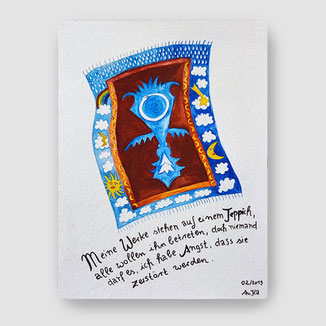 Meine Werke stehen auf einem Teppich,
alle wollen ihn betreten, doch niemand
darf es, ich habe Angst, dass sie
zerstört werden.
02/2019